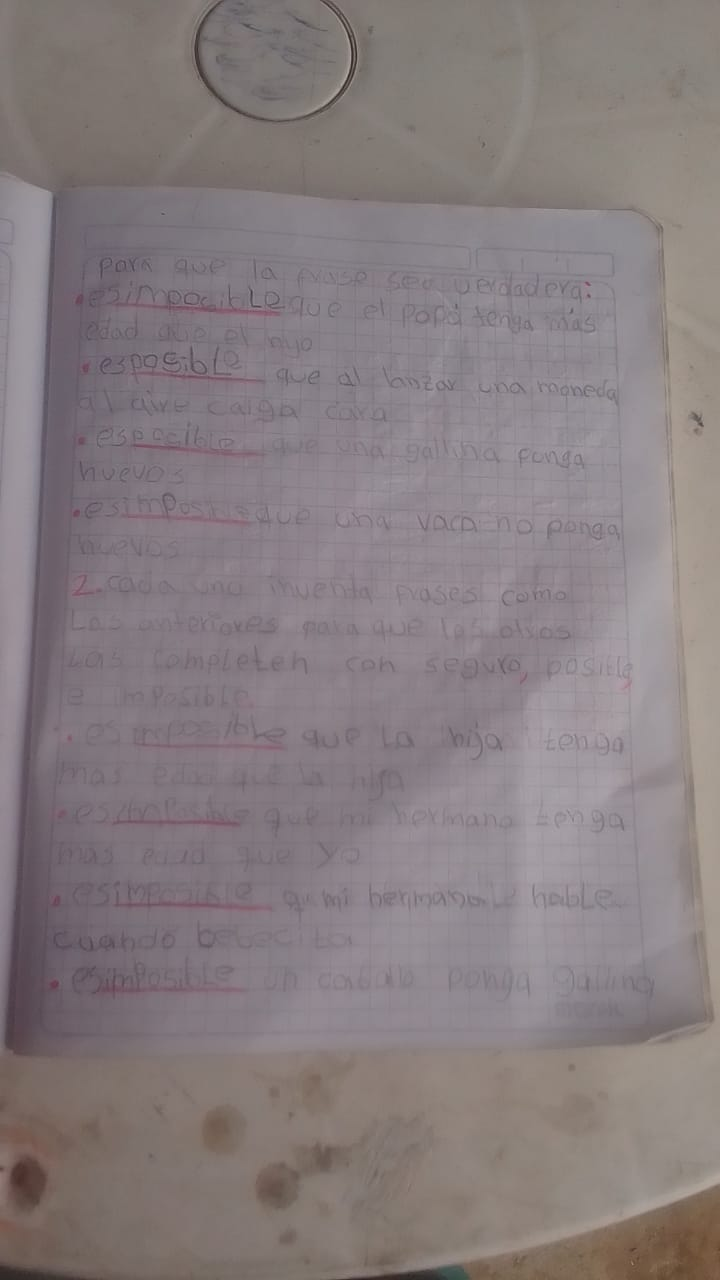 para que la frase sea verdadera:
.esimpocibLe que el papá tenga más
edad que el hijo
.esposible que al lanzar una moneda
al aire caiga cara
.espocible que una gallina ponga
huevos
.esimposible que una vaca no ponga
huevos
2.cada uno inventa frases como
Las anteriores para que los otros
Las completen con seguro, posible
e imposible.
.es imposible que La hija tenga
mas edad que la hija
.esimposible que mi hermano tenga
mas edad que yo
.esimposible q mi hermano hable
cuando bebecito
.esimposible un caballo ponga gallina